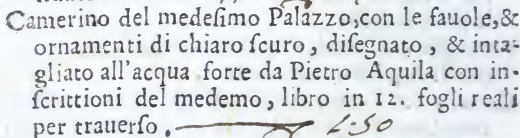 Camerino del medeſimo Palazzo,con le fauole,&
ornamenti di chiaro ſcuro, diſegnato, & inta-
gliato all'acqua forte da Pietro Aquila con in-
ſcrittioni del medemo, libro in 12. fogli reali
per trauerſo. 2.50